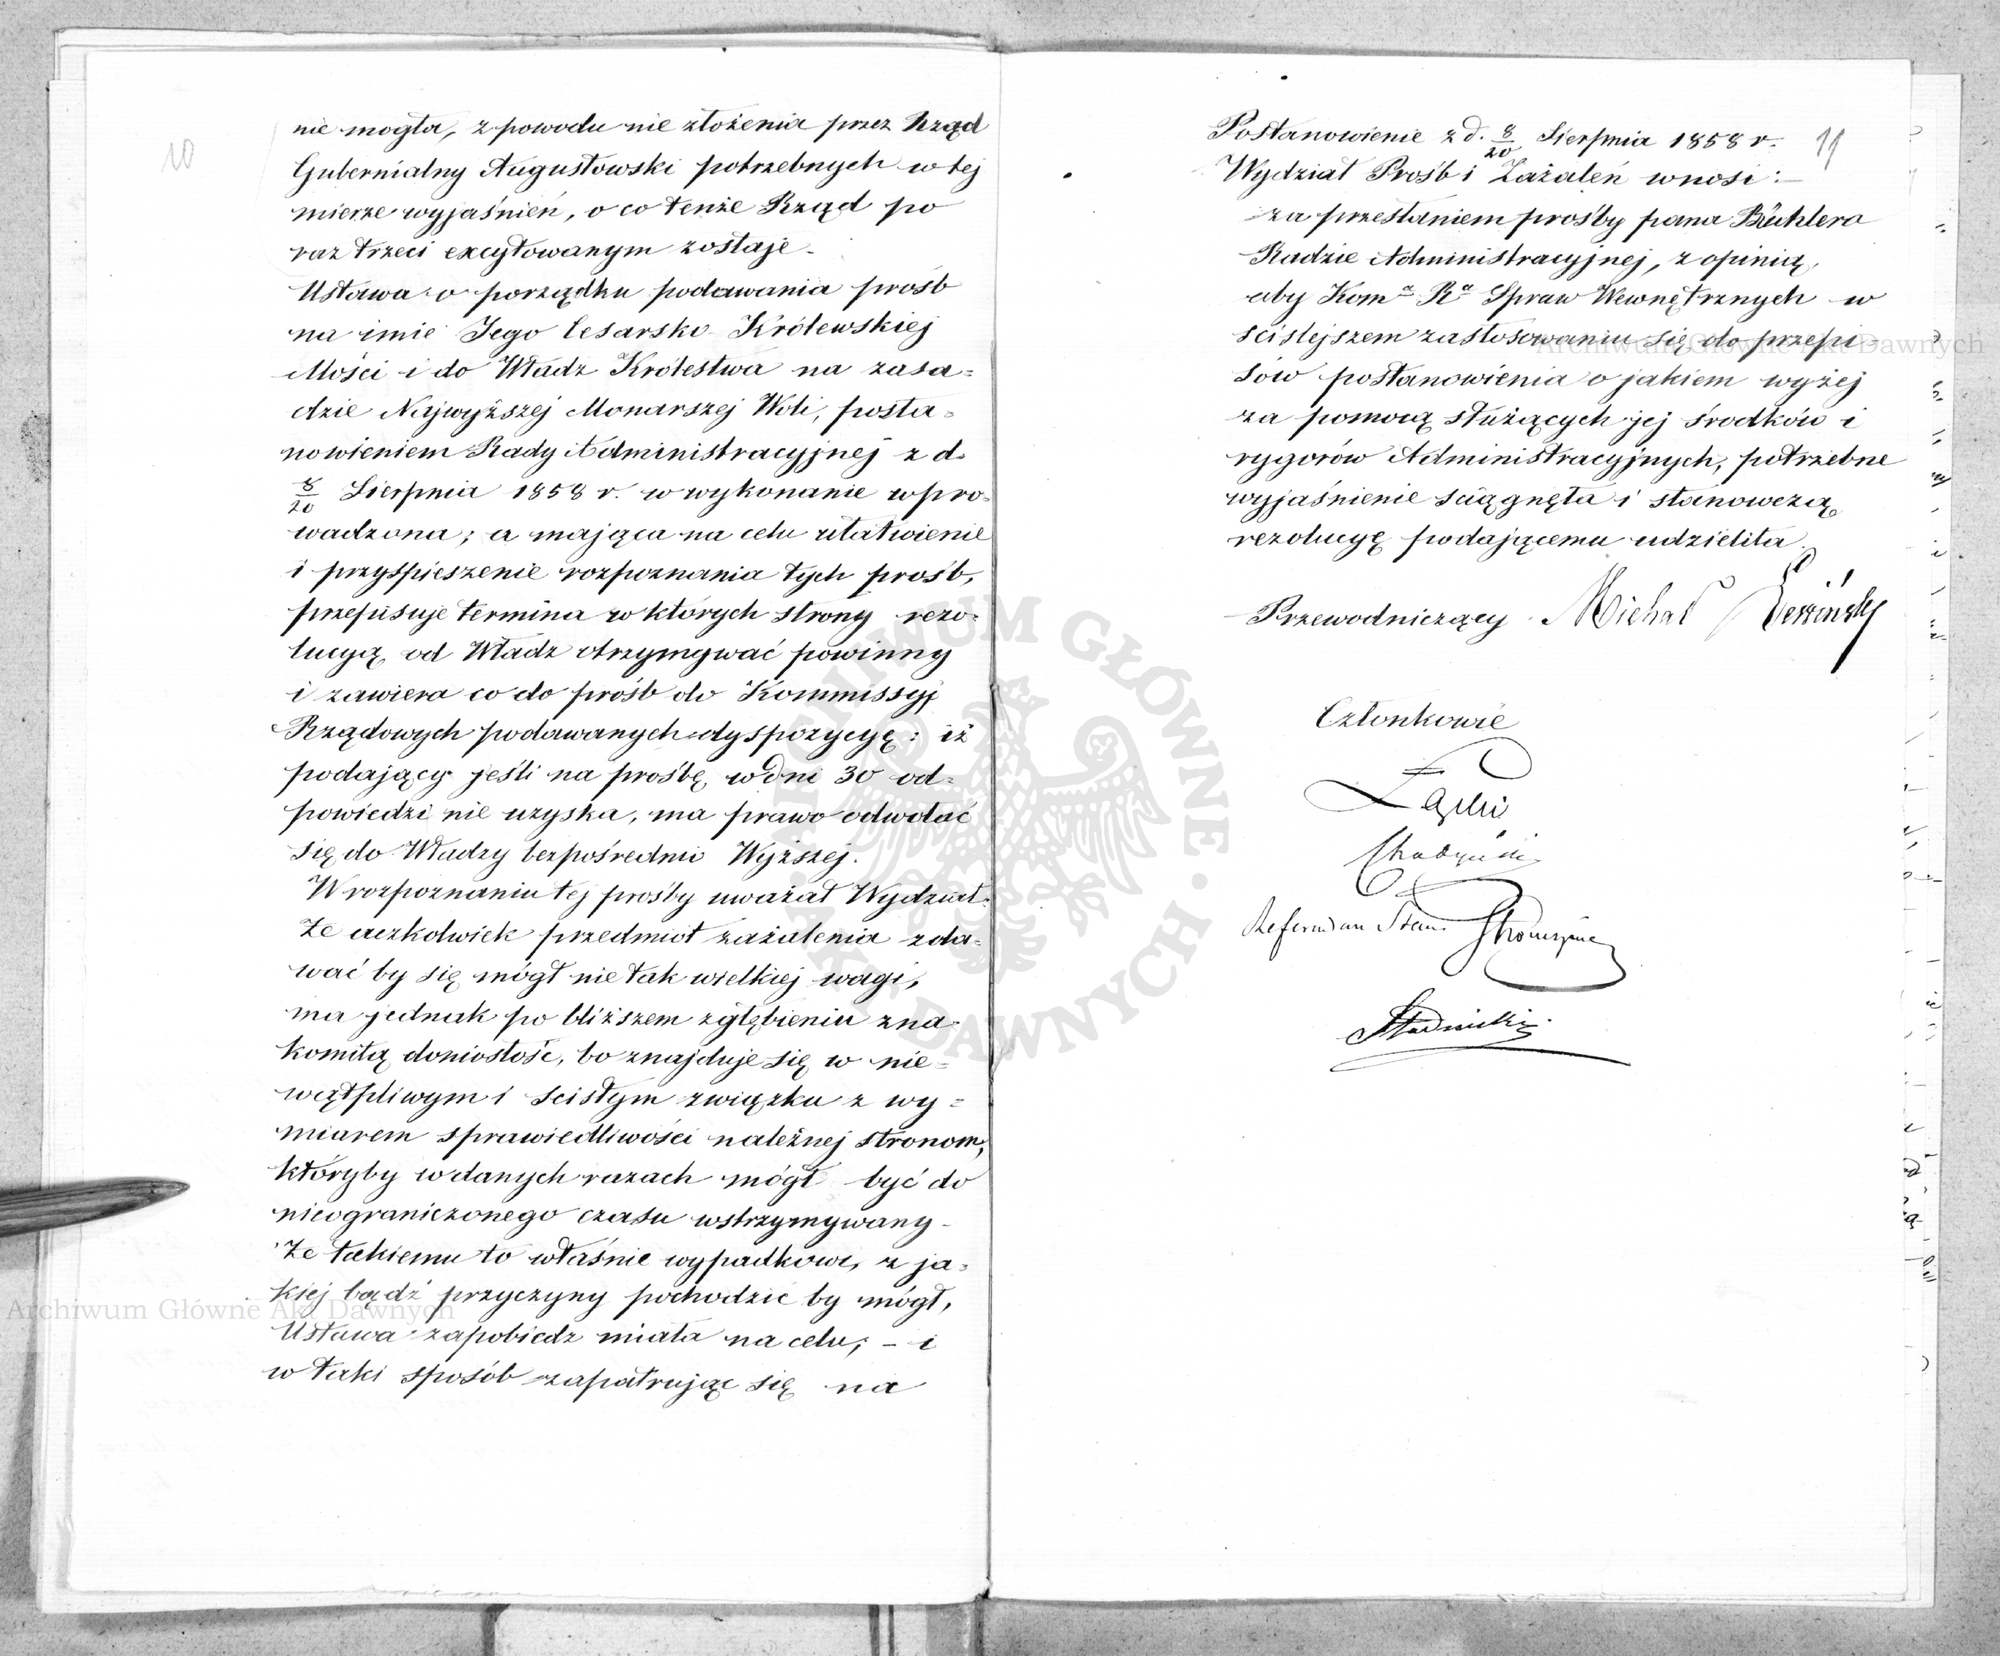 10
nie mogła, z powodu nie złożenia przez Rząd
Gubernialny Augustowski potrzebnych w tej
mierze wyjaśnień, o co tenże Rząd po
raz trzeci excytowanym zostaje.
Ustawa o porządku podawania prośb
na imie Jego Cesarsko Królewskiej
Mości i do Władz Królestwa na zasa=
dzie Najwyższej Monarszej Woli, posta=
nowieniem Rady Administracyjnej z d.
8/20 Sierpnia 1858 r. w wykonanie wpro=
wadzona; a mająca na celu ułatwienie
i przyspieszenie rozpoznania tych prośb,
przepisuje termina w których strony rezo=
lucyą od Władz otrzymywać powinny
i zawiera co do prośb do Kommissyj
Rządowych podawanych dyspozycyę: iż
podający jeśli na prośbę w dni 30 od=
powiedzi nie uzyska, ma prawo odwołać
się do Władzy bezpośrednio Wyższej.
W rozpoznaniu tej prośby uważał Wydział:
że aczkolwiek przedmiot zażalenia zda=
wać by się mógł nie tak wielkiej wagi,
ma jednak po bliższem zgłębieniu zna=
komitą doniosłość, bo znajduje się w nie=
wątpliwym i scisłym związku z wy=
miarem sprawiedliwości należnej stronom,
któryby w danych razach mógł być do
nieograniczonego czasu wstrzymywany.
Że takiemu to właśnie wypadkowi, z ja=
kiej bądź przyczyny pochodzić by mógł,
Ustawa zapobiedz miała na celu; – i
w taki sposób zapatrując się na
11
Postanowienie z d. 8/20 Sierpnia 1858 r.
Wydział Prośb i Zażaleń wnosi:
za przesłaniem prośby pana Bühlera
Radzie Administracyjnej, z opinią,
aby Komª Rª Spraw Wewnętrznych w
scislejszem zastosowaniu się do przepi=
sów postanowienia o jakiem wyżej
za pomocą służących jej środków i
rygorów Administracyjnych, potrzebne
wyjaśnienie sciągnęła i stanowczą
rezolucyę podającemu udzieliła.
Przewodniczący Michał
Członkowie
Łąski
Chądzyński
Referendarz Stanu
Stadnicki
ARCHIWUM GŁÓWNE AKT DAWNYCH
Archiwum Główne Akt Dawnych
Archiwum Główne Akt Dawnych